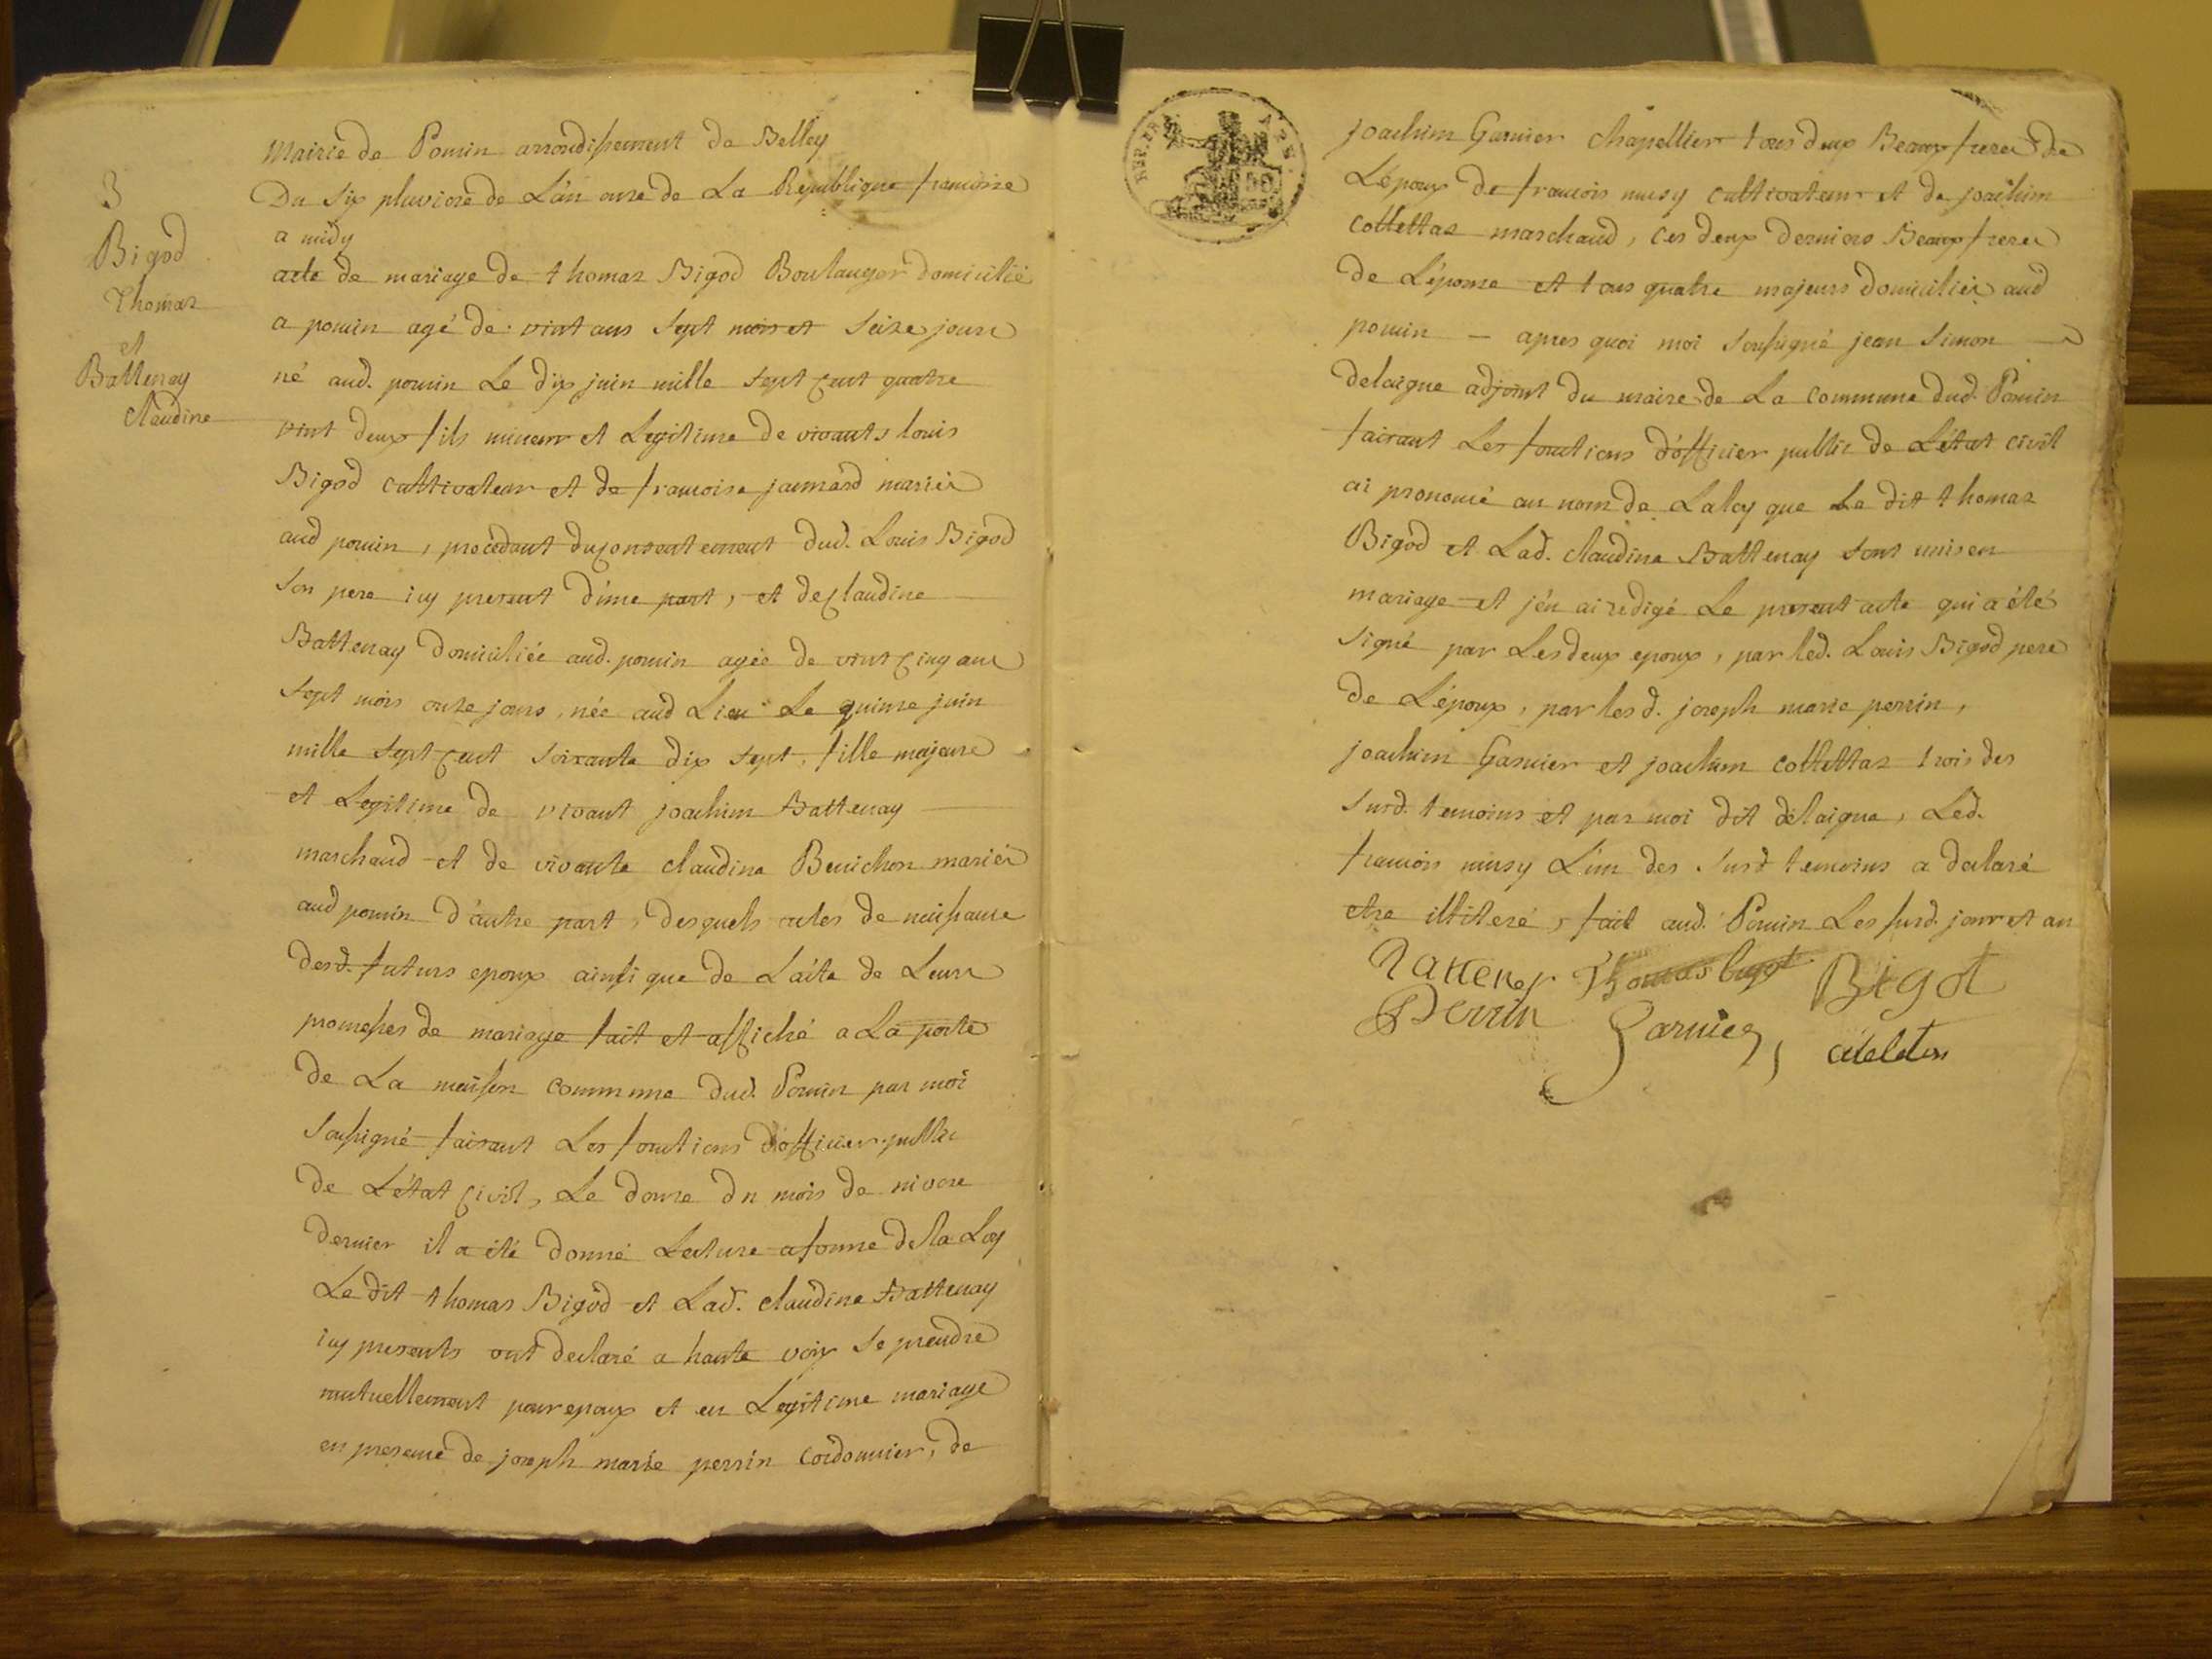 3
Bigod
Thomas
et
Battenay
claudine
Mairie de Poncin arrondissement de Belley
Du six pluviose de L'an onze de La Republique francoise
a midy
acte de mariage de thomas Bigod Boulanger domicilié
a poncin agé de vint ans sept mois et seize jours
né aud. poncin Le dix juin mille sept cent quatre
vint deux fils mineur et Legitime de vivants louis
Bigod cultivateur et de francoise jannard mariés
aud poncin, procedant du consentement dud. Louis Bigod
son pere icy present d'une part, et de claudine
Battenay domiciliée aud. poncin agée de vint cinq ans
sept mois onze jours, née aud Lieu Le quinze juin
mille sept cent soixante dix sept, fille majeure
et Legitime de vivant joachim Battenay
marchand et de vivante claudine Benichon mariés
aud poncin d'autre part, desquels actes de naissance
desd. futurs epoux ainsi que de L'acte de Leurs
promesses de mariage fait et affiché a La porte
de La maison commune dud. Poncin par moi
soussigné faisant Les fonctions d'officier public
de L'état civil, Le douze du mois de nivose
dernier il a été donné Lecture a forme de la Loy
Le dit thomas Bigod et Lad. claudine Battenay
icy presents ont declaré a haute voix se prendre
mutuellement pour epoux et en Legitime mariage
en presence de joseph marie perrin cordonnier, de
REP. FRA
50
joachim Garnier chapellier tous deux Beaux freres de
L'époux de francois musy cultivateur et de joachim
cottettaz marchand, ces deux derniers Beaux freres
de L'épouse et tous quatre majeurs domiciliés aud
poncin – apres quoi moi soussigné jean simon
delaigue adjoint du maire de La commune dud. Poncin
faisant Les fonctions d'officier public de L'état civil
ai prononcé au nom de La loy que Le dit thomas
Bigod et Lad. claudine Battenay sont unis en
mariage et j'en ai redigé Le present acte qui a été
signé par Les deux epoux, par led. Louis Bigod pere
de L'époux, par les d. joseph marie perrin,
joachim Garnier et joachim cottettaz trois des
susd. temoins et par moi dit delaigue, Led.
francois musy L'un des susd temoins a declaré
etre illiteré, fait aud. Poncin Les susd. jour et an
Battenay Thomas bigot Bigot
Perrin Garnier,